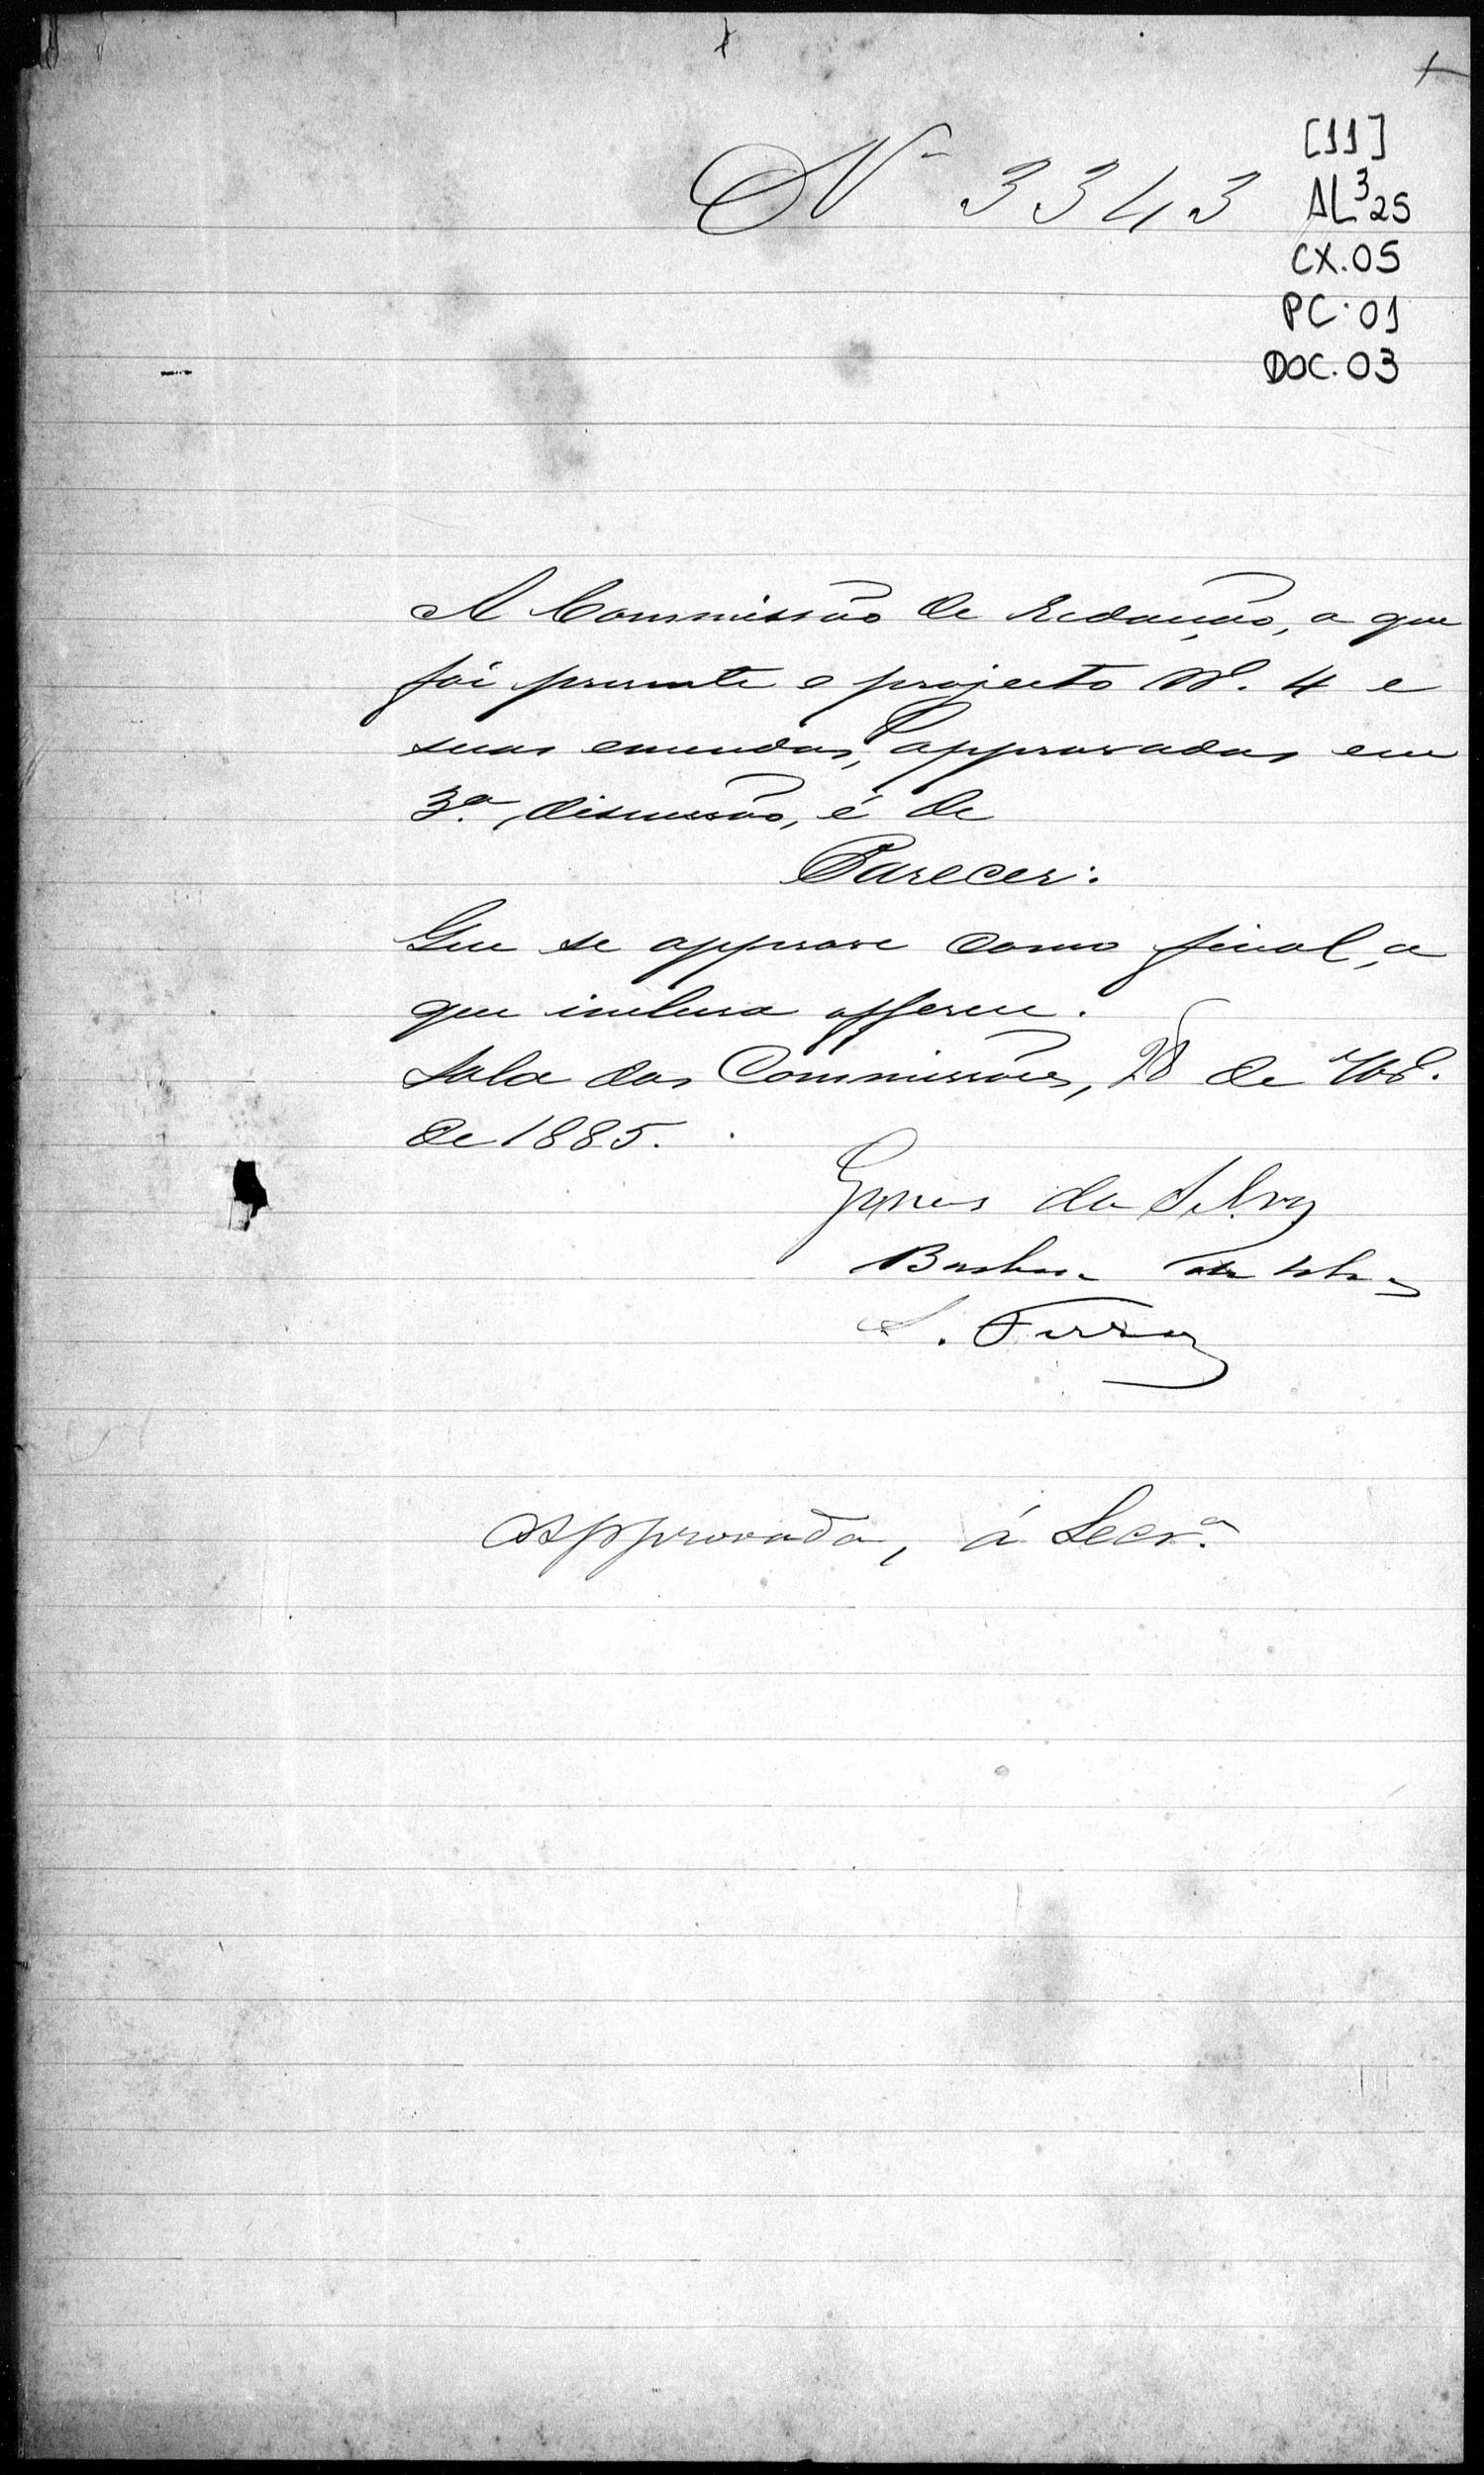 Nº 3343
[11]
AL³25
CX.05
PC.01
DOC.03
A Commissão de Redacção, a que
foi presente o projecto Nº. 4 e
suas emendas, approvadas em
3.ª discussão, é de
Parecer:
Que se approve como final, a
que inclusa offerece.
Sala das Commissões, 28 de
de 1885.
Gomes da Silva
Barbosa da
L. Ferraz
Approvada, á Secr.ª